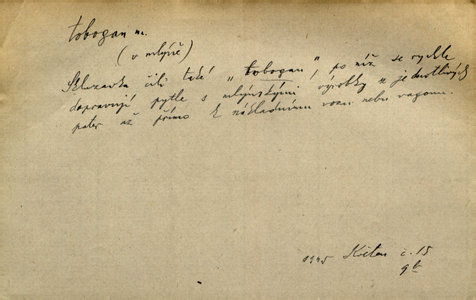 tobogan m.
(v mlýně)
Skluzavka čili také „tobogan“, po níž se rychle
dopravují pytle s mlýnskými výrobky z jednotlivých
pater až přímo k nákladnímu vozu nebo vagonu.
1945 Květen č. 15